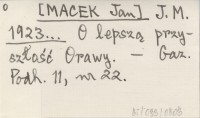 [MACEK Jan] J. M.
1923... O lepszą przy-
szłość Orawy. — Gaz.
Podh. 11, nr 22.